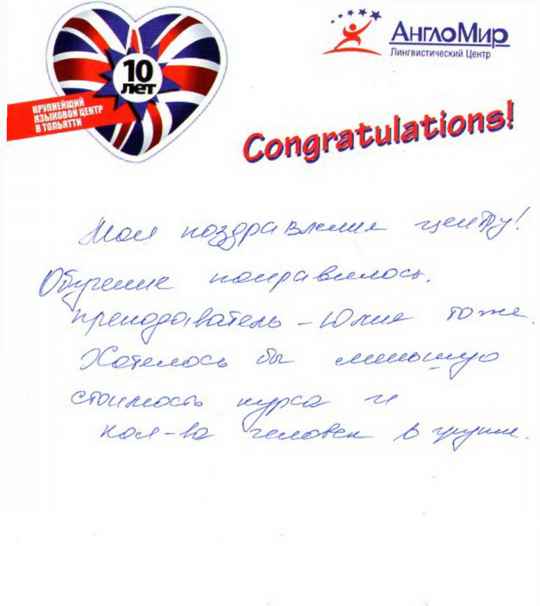 10
лет
КРУПНЕЙШИЙ
ЯЗЫКОВОЙ ЦЕНТР
В ТОЛЬЯТТИ
АнглоМир
Лингвистический Центр
Congratulations!
Мои поздравления центру!
Обучение понравилось.
преподаватель - Юлия тоже.
Хотелось бы меньшую
стоимость курса и
кол-ва человек в группе.